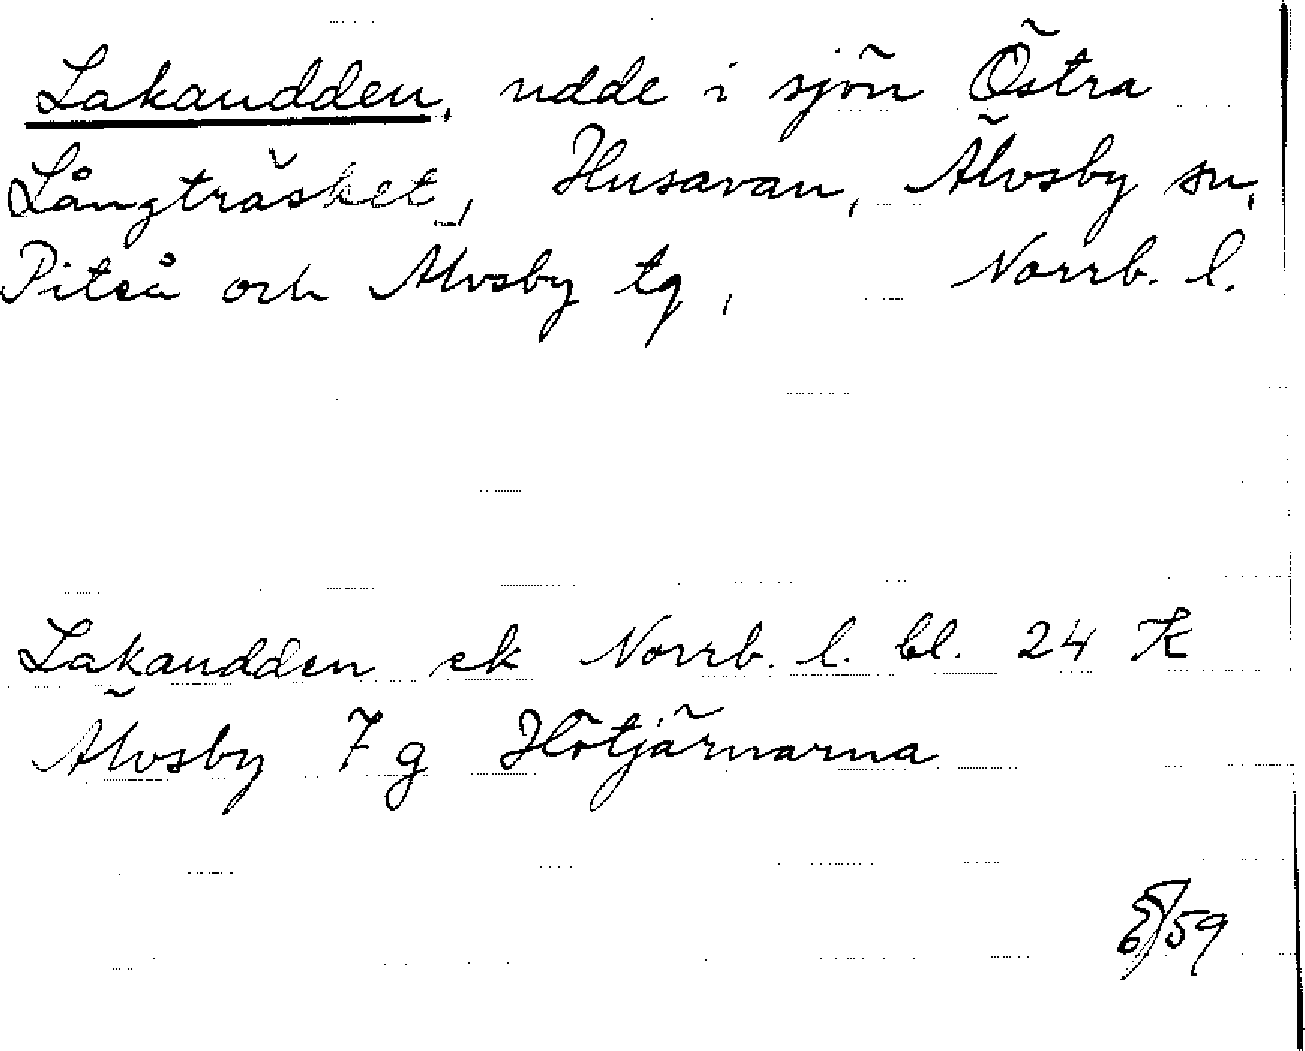 Lakaudden, udde i sjön Östra
Långträsket, Husavan, Älvsby sn,
Piteå och Älvsby tg, Norrb. l.
Lakaudden ek Norrb. l. bl. 24 K
Älvsby 7 g Hötjärnarna
/59